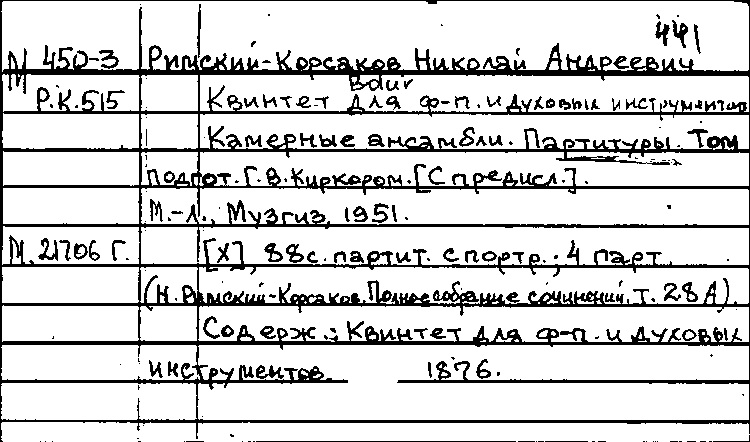 441
М 450-3 Римский-Корсаков Николай Андреевич
Р.К.515 Квинтет Bdur для ф-п. и духовых инструментов
Камерные ансамбли. Партитуры. Том
подгот. Г.В. Киркором. [С предисл.].
М.-Л., Музгиз, 1951.
М. 21706 Г. [X], 88с. партит. с портр.; 4 парт.
(Н. Римский-Корсаков. Полное собрание сочинений. Т. 28 А).
Содерж.: Квинтет для ф-п. и духовых
инструментов. 1876.